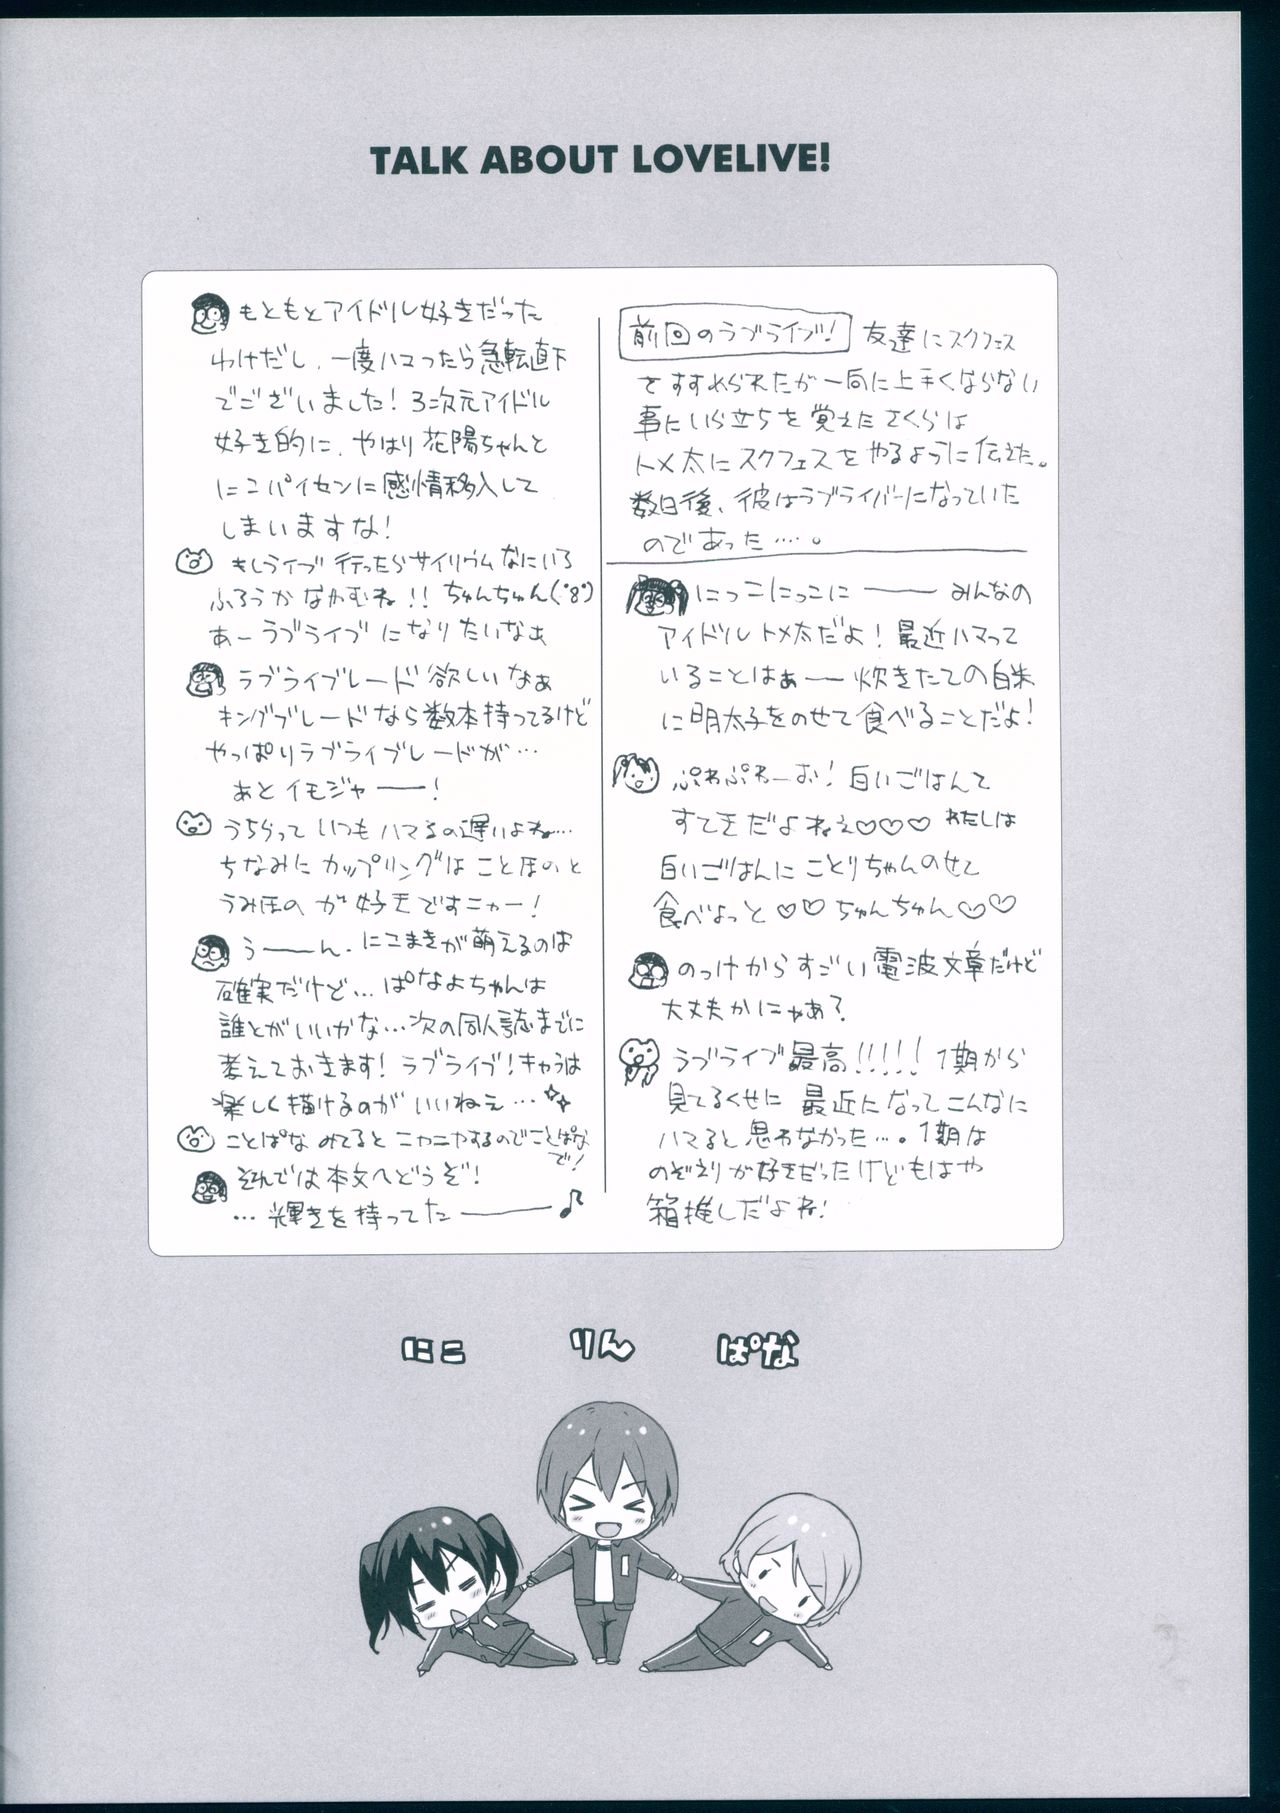 TALK ABOUT LOVELIVE!
前回のラブライブ! 友達にスクフェス
をすすめられたが一向に上手くならない
事にいら立ちを覚えたさくらは
トメ太にスクフェスをやるように伝えた。
数日後、彼はラブライバーになっていた
のであった…。
にっこにっこに―― みんなの
アイドルトメ太だよ!最近ハマって
いることはぁ―炊きたての白米
に明太子をのせて食べることだよ!
ぷわぷわーお!白いごはんて
すてきだよねぇ♡♡♡ わたしは
白いごはんにことりちゃんのせて
食べよっと♡♡ちゅんちゅん♡♡
のっけからすごい電波文章だけど
大丈夫かにゃあ?
ラブライブ最高!!!!! 1期から
見てるくせに 最近になってこんなに
ハマると思わなかった…。1期は
のぞえりが好きだったけどもはや
箱推しだよね!
もともとアイドル好きだった
わけだし、一度ハマったら急転直下
でございました!3次元アイドル
好き的に、やはり花陽ちゃんと
にこパイセンに感情移入して
しまいますな!
もしライブ行ったらサイリウムなにいろ
ふろうかなやむね!!ちゅんちゅん(゚8゚)
あーラブライブになりたいなぁ
ラブライブレード欲しいなぁ
キングブレードなら数本持ってるけど
やっぱりラブライブレードが…
あとイモジャ――!
うちらっていつもハマるの遅いよね…
ちなみにカップリングはことほのと
うみほのが好きですニャー!
う――ん、にこまきが萌えるのは
確実だけど…ぱなよちゃんは
誰とがいいかな…次の同人誌までに
考えておきます!ラブライブ!キャラは
楽しく描けるのがいいねえ…
ことぱなみてるとニヤニヤするのでことぱな
で!
それでは本文へどうぞ!
…輝きを持ってた――♪
にこ りん ぱな